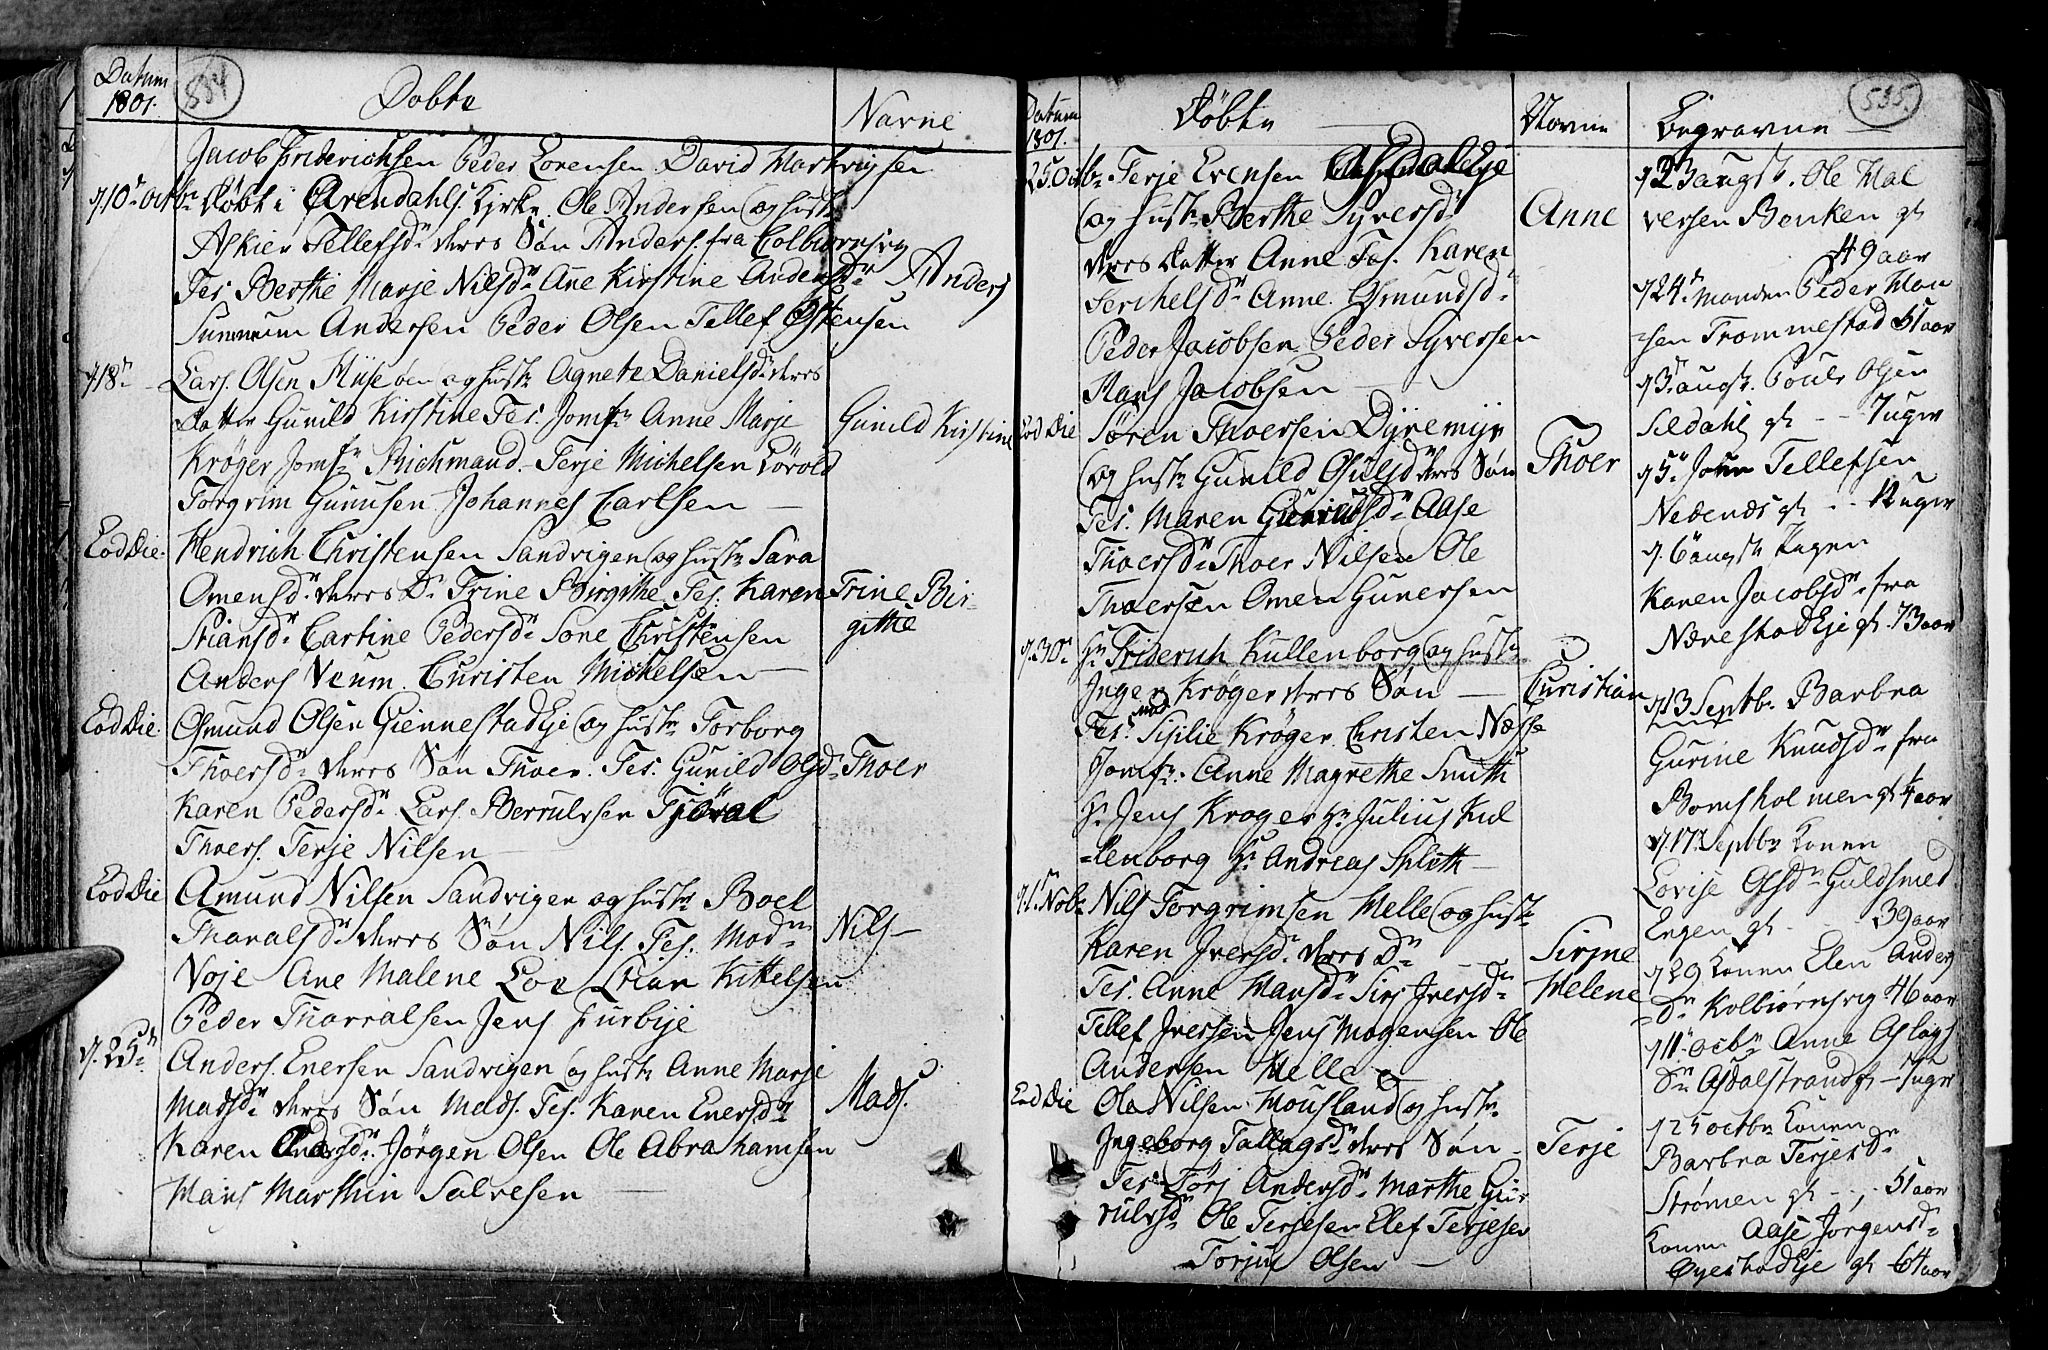 Datum
1801.
534
Dobte
Navne
Jacob Friderichsen Peder Lorensen David Hartvigsen
d. 10 octbr Döbt i Arendahls Kirke Ole Andersen og hustr
Askier Tellefsdr deres Sön Anders fra Colbiørnsvig
Anders
Tes. Berthe Marje Nilsdr Ane Kirstine Andersdr
Gunnum Andersen Peder Olsen Tellef Østensen
d. 18n Lars Olsen Huse øen og hustr Agnete Danielsdr deres
datter Gunild Kirstine Tes. Jomfr Anne Marje
Gunild Kirstine
Krøger Jomfr Richmand. Terje Michelsen Lövold
Torgrim Gunusen Johannes Carlsen
Eod Die. Hendrich Christensen Sandvigen og hustr Sara
Omensdr deres Dr Trine Birgithe Tes. Karen
Trine Bir-
Stiansdr Cartine Pedersdr Sone Christensen
githe
Anders Veum. Christen Michelsen
Eod Die. Osmund Olsen Giennestadeje og hustr Torborg
Thoersdr deres Sön Thoer. Tes. Gunild Olsdr
Thoer
Karen Pedersdr Lars Berrulvsen Tjöval
Thoers. Terje Nilsen
Eod Die Amund Nilsen Sandvigen og hustr Boel
Tharalsdr deres Sön Nils. Tes. Madm
Nils
Voje Ane Malene Loe Stian Kittelsen
Peder Tharralsen Jens Furbije
d. 25n Anders Enersen Sandvigen og hustr Anne Marje
Madsdr deres Sön Mads. Tes. Karen Enersdr
Mads.
Karen Andersdr. Jörgen Olsen Ole Abrahamsen
Hans Marthin Salvesen
Datum
1801.
Döbte
Navne
Begravne
535.
25 Octbr Terje Evensen Asdaleje
og hustr Berthe Syversdr
Anne
deres datter Anne Tes. Karen
Terchelsdr Anne Osmundsdr
Peder Jacobsen Peder Syversen
Hans Jacobsen
Eod Die Sören Thoersen Dyremyr
og hustr Gunild Osulsdr deres Sön
Thoer
Tes. Maren Gunnisdr Aase
Thoersdr Thoer Nilsen Ole
Thoersen Omen Gunersen
d. 30n Hr Friderich Kullenborg og hustr
Inger Krøger deres Sön
Christian
Tes. Mad Sisilie Krøger Christen Næsse
Jomfr. Anne Magrethe Smith
Hr Jens Krøger Hr Julius Kul
lenborg Hr Andreas Splith
d. 1 Nobr Nils Torgrimsen Helle og hustr
Karen Iversdr deres Dr
Sirjne
Tes. Anne Hansdr Sirj Iversdr
Helene
Tellef Iversen Jens Mogensen Ole
Andersen Helle
Eod Die Ole Nilsen Mousland og hustr
Ingeborg Tallagsdr deres Sön
Terje
Tes. Törj Andersdr Marthe Gur
rulvsdr Ole Terjesen Elef Terjesen
Torjus Olsen
d. 23 augst. Ole Hal
versen Benken gl
49 aar
d. 24n Manden Peder Han
sen Trommestad 51 aar
d. 3 augst. Pouls Olsen
Seldahl gl 7 uger
d. 5n John Tellefsen
Nedenes gl uger
d. 6 augst Pigen
Karen Jacobsdr fra
Nærestadeje gl. 73 aar
d. 13 Septbr Barbra
Gurine Knudsdr fra
Bomsholmen gl 4 aar
d. 17n Septbr Konen
Lovise Olsdr Guldsmed
Engen gl 39 aar
d. 29 Konen Elen Anders
Dr Kolbiørnsvig 46 aar
d. 11 octbr Anne Aslags
Dr Asdalstrand gl 7 uger
d. 25 octbr Konen
Barbra Terjes Dr
Strømen gl 51 aar
Konen Aase Jørgensdr
Øyestadeje gl 64 aar